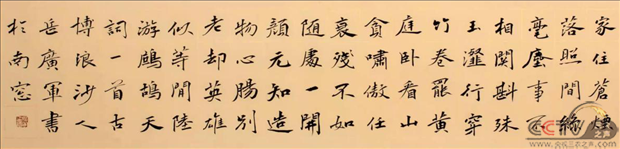 家住蒼煙
落照間絲
毫塵事不
相關斟殘
玉瀣行穿
竹卷罷黃
庭卧看山
貪嘯傲任
衰殘不如
隨處一開
顏元知造
物心腸別
老却英雄
似等閒陸
游鷓鴣天
詞一首古
博浪沙人
岳廣軍書
於南窗